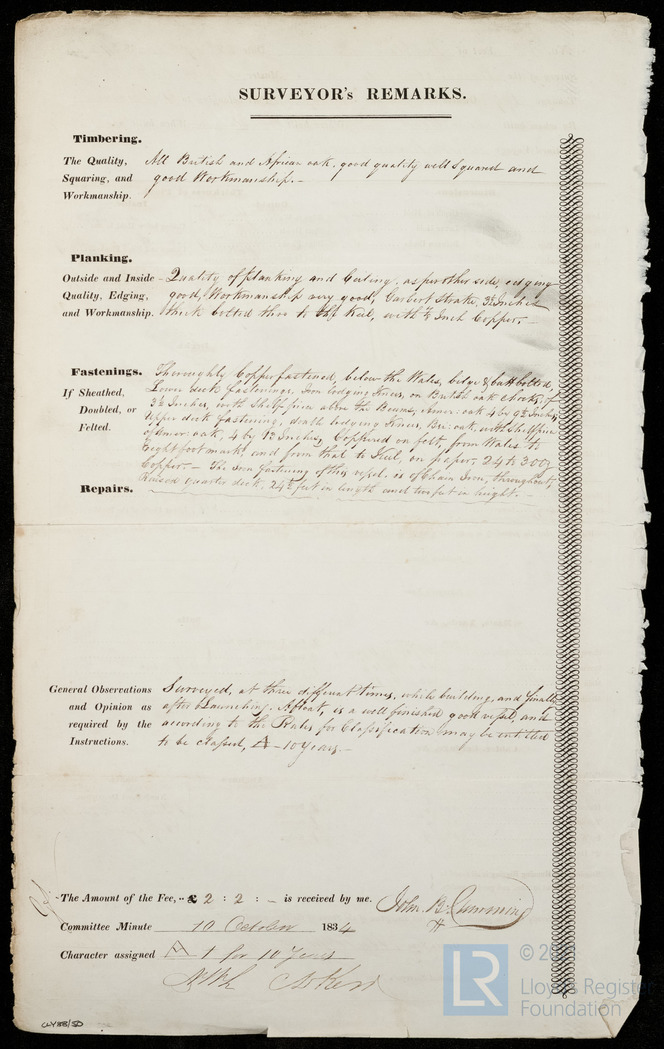 SURVEYOR's REMARKS.
Timbering.
The Quality, Squaring, and Workmanship.
All British and African oak, good quality well squared and
good Workmanship.-
Planking.
Outside and Inside Quality, Edging, and Workmanship.
- Quality of planking and Ceiling, as per other side, edging
good, Workmanship very good, Garbert Strake, 3½ Inches
thick bolted thro to the Keel, with ⅞ Inch Copper.-
Fastenings.
If Sheathed, Doubled, or Felted.
Thoroughly Copper fastened, below the Wales, belge & butt bolted,
Lower deck fastenings, Iron lodging Knees, on British oak chocks, of
3½ Inches, with Shelf piece above the Beams, Amer: oak 4 by 9½ Inches,
Upper deck fastening, double lodging Knees, Bri: oak, with Shelfpiece
of Amer: oak, 4 by 12 Inches, Coppered on felt, from Wales to
Eight foot mark and from that to Keel, on paper, 24 to 30 oz
Copper.- The Iron fastening of this vessel, is of Chain Iron, throughout,
Raised quarter deck, 24½ feet in length and two feet in height.-
Repairs.
General Observations and Opinion as required by the Instructions.
Surveyed, at three different times, while building, and finally
after Launching. Afloat, is a well finished good vessel, and
according to the Rules for Classification may be entitled
to be classed, A - 10 Years.-
The Amount of the Fee, £ 2 : 2 : - is received by me. John B. Cumming
Committee Minute 10 October 1834
Character assigned A 1 for 10 Years
LR
Lloyd's Register
Foundation
CLY88/50